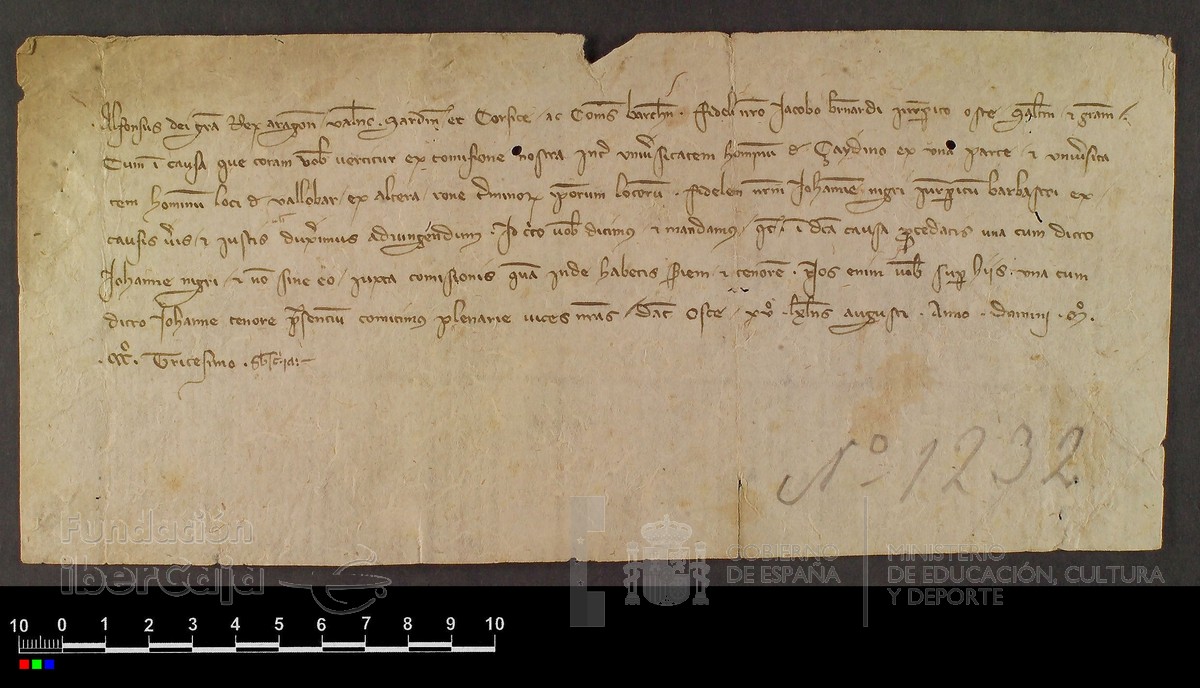 Alfonsus dei gra Rex aragon valenc Sardin et Corsice ac Comes barchn. Fideli nro Jacobo bernardi iurisperito osce saltm & gram.
Cum i causa que coram vob vertitur ex comissione nostra inter universitatem hominum de Çaydino ex una parte & universita
tem hominum loci de vallobar ex altera rone terminorum ipsorum locorum. fidelem nrm Johannem nigri iurisperitum barbastri ex
causis veris & iustis duxerimus adiungendum. Id circo vob dicimus & mandamus, qd i dca causa procedatis una cum dicto
Johanne nigri & no sine eo iuxta comissionis quam inde habetis seriem & tenorem. Nos enim vob super hiis una cum
dicto Johanne tenore presencium comitimus plenarie vices nras. Dat Osce xvº klns augusti. Anno domini. Mº.
CCCº. Tricesimo.
Nº 1232
Fundación
iberCaja
GOBIERNO
DE ESPAÑA
MINISTERIO
DE EDUCACIÓN, CULTURA
Y DEPORTE
10 0 1 2 3 4 5 6 7 8 9 10